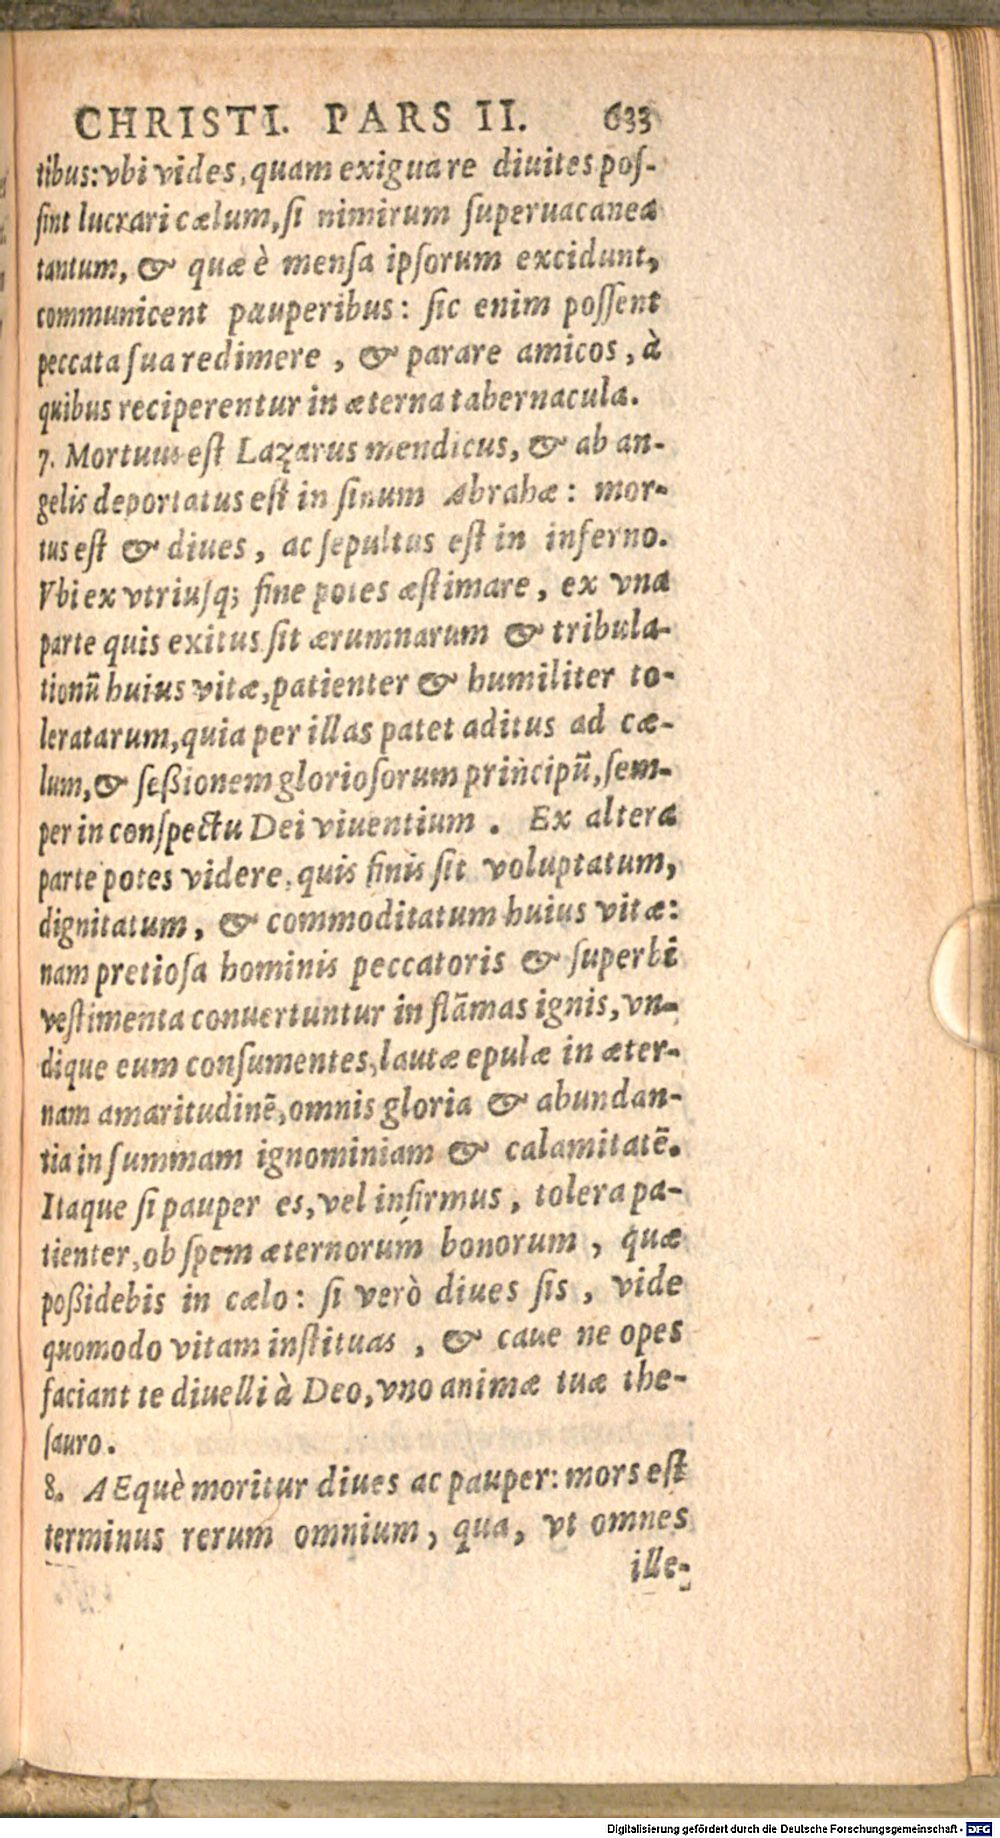 CHRISTI. PARS II. 633
tibus: vbi vides, quam exigua re diuites pos-
sint lucrari cælum, si nimirum superuacanea
tantum, & quæ è mensa ipsorum excidunt,
communicent pauperibus: sic enim possent
peccata sua redimere, & parare amicos, à
quibus reciperentur in æterna tabernacula.
7. Mortuus est Lazarus mendicus, & ab an-
gelis deportatus est in sinum Abrahæ: mor-
tus est & diues, ac sepultus est in inferno.
Vbi ex vtriusq; fine potes æstimare, ex vna
parte quis exitus sit ærumnarum & tribula-
tionū huius vitæ, patienter & humiliter to-
leratarum, quia per illas patet aditus ad cæ-
lum, & seßionem gloriosorum principū, sem-
per in conspectu Dei viuentium. Ex altera
parte potes videre, quis finis sit voluptatum,
dignitatum, & commoditatum huius vitæ:
nam pretiosa hominis peccatoris & superbi
vestimenta conuertuntur in flāmas ignis, vn-
dique eum consumentes, lautæ epulæ in æter-
nam amaritudinē, omnis gloria & abundan-
tia in summam ignominiam & calamitatē.
Itaque si pauper es, vel infirmus, tolera pa-
tienter, ob spem æternorum bonorum, quæ
poßidebis in cælo: si verò diues sis, vide
quomodo vitam instituas, & caue ne opes
faciant te diuelli à Deo, vno animæ tuæ the-
sauro.
8. AEquè moritur diues ac pauper: mors est
terminus rerum omnium, qua, vt omnes
ille-
Digitalisierung gefördert durch die Deutsche Forschungsgemeinschaft - DFG